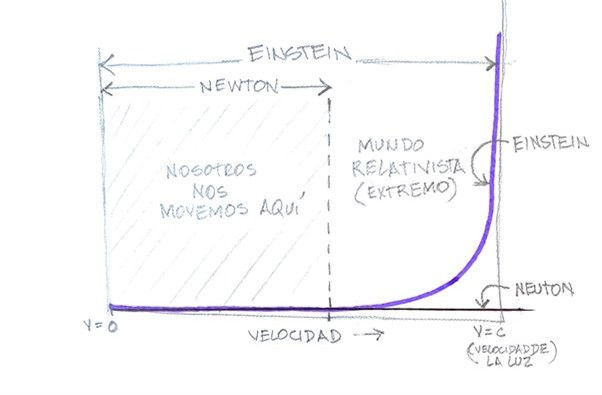 EINSTEIN
NEWTON
NOSOTROS
NOS
MOVEMOS AQUÍ
MUNDO
RELATIVISTA
(EXTREMO)
EINSTEIN
NEUTON
V=0
VELOCIDAD →
V=C
(VELOCIDAD DE
LA LUZ)